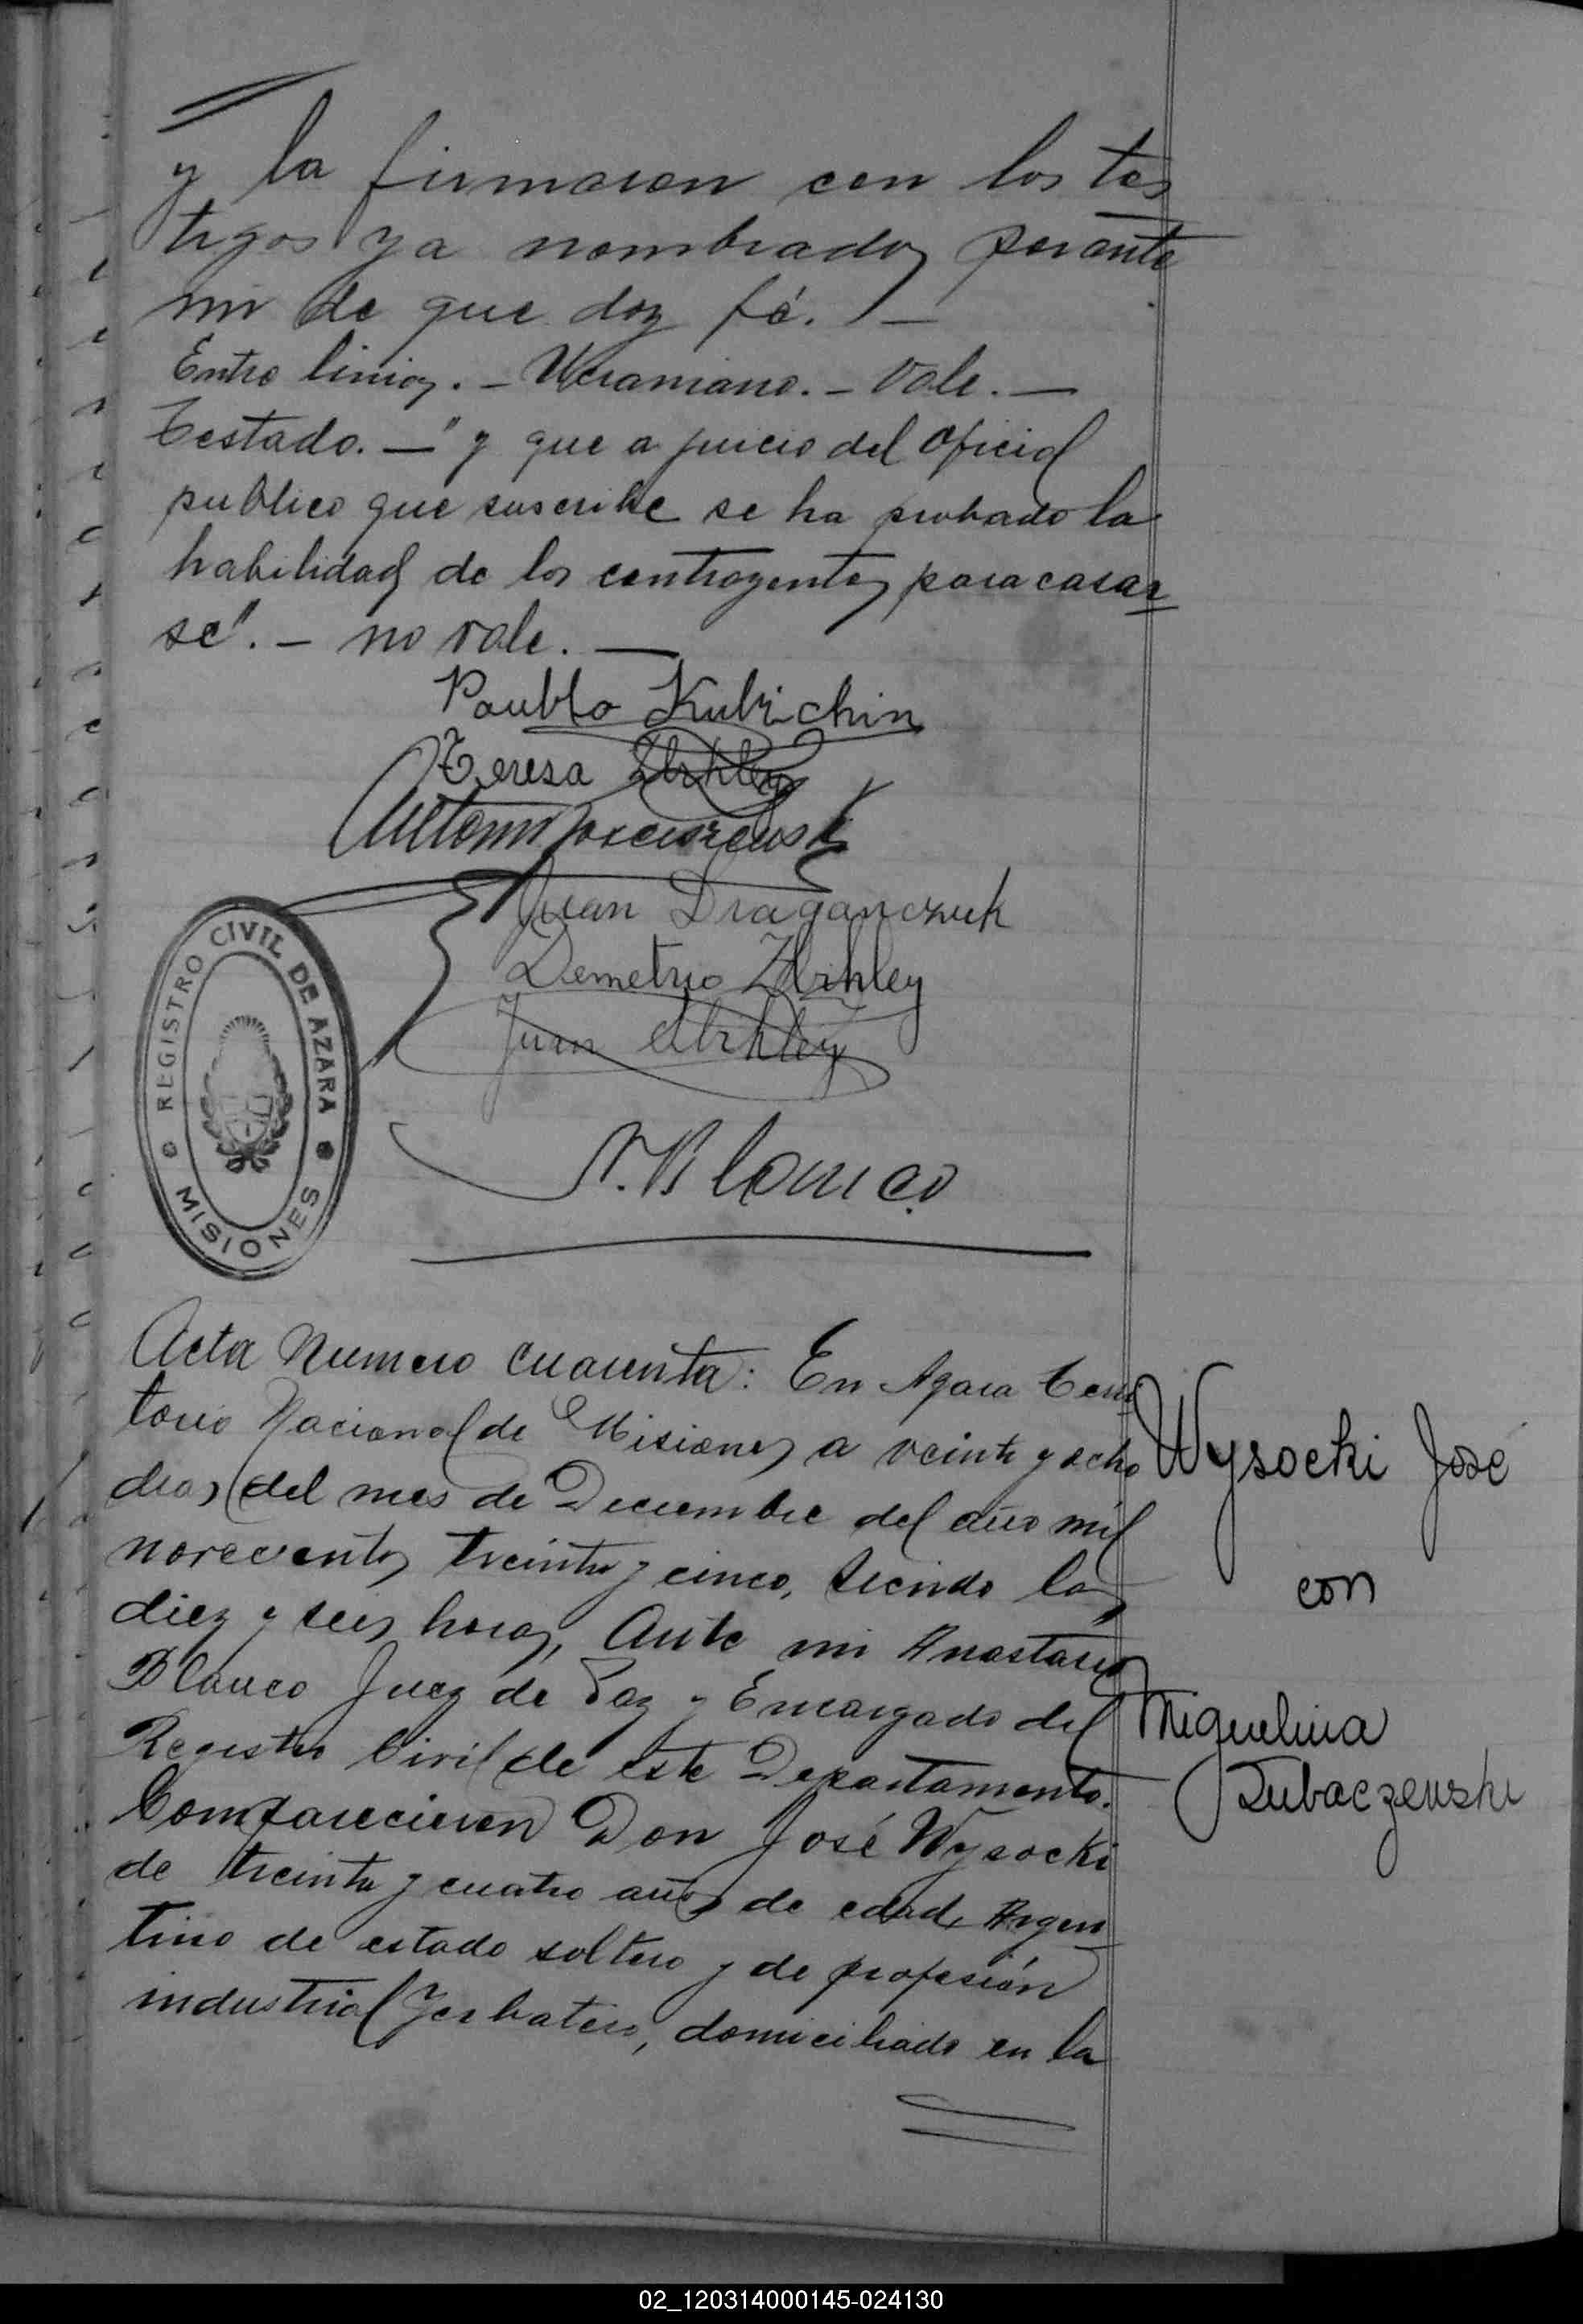 y la firmaron con los tes
tigos ya nombrados por ante
mi de que doy fé. —
Entre linias. — Ucraniano. — Vale. —
Testado. — "y que a juicio del oficial
publico que suscribe se ha probado la
habilidad de los contrayentes para casar
se". — no vale. —
Paublo Kubichin
Teresa
Juan Draganczuk
Demetrio
Juan
A. Blanco
REGISTRO CIVIL DE AZARA
MISIONES
Acta Numero cuarenta: En Azara Terri
torio Nacional de Misiones a veinte y ocho
dias del mes de Diciembre del año mil
novecientos treinta y cinco, siendo las
diez y seis horas, Ante mi Anastacio
Blanco Juez de Paz y Encargado del
Registro Civil de este Departamento.
Comparecieron Don José Wysocki
de treinta y cuatro años de edad, Argen
tino de estado soltero y de profesión
industrial Yerbatero, domiciliado en la
Wysocki José
con
Miguelina
Lubaczewski
02_120314000145-024130